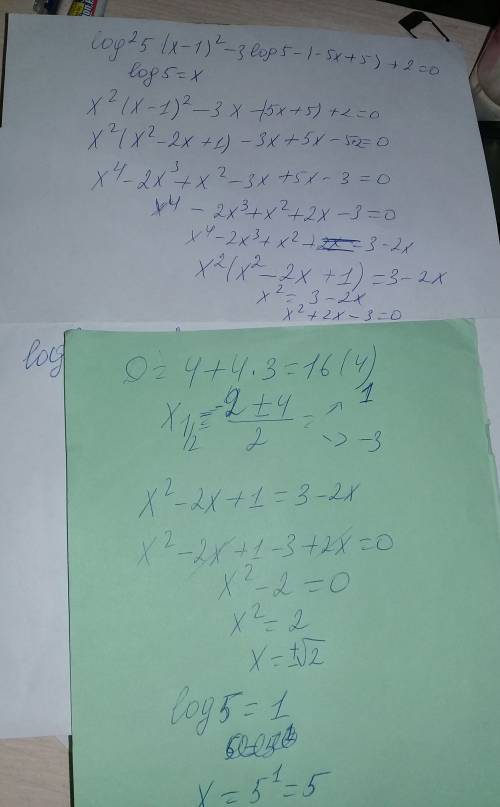 log²5 (x-1)² - 3log5 - (-5x+5) + 2 = 0
log5 = x
x²(x-1)² - 3x - (5x+5) + 2 = 0
x²(x² - 2x + 1) - 3x + 5x - 5+2 = 0
x⁴ - 2x³ + x² - 3x + 5x - 3 = 0
x⁴ - 2x³ + x² + 2x - 3 = 0
x⁴ - 2x³ + x² = 3 - 2x
x²(x² - 2x + 1) = 3 - 2x
x² = 3 - 2x
x² + 2x - 3 = 0
log
D = 4 + 4·3 = 16 (4)
x 1/2 = -2 ± 4 / 2 = 1
-3
x² - 2x + 1 = 3 - 2x
x² - 2x + 1 - 3 + 2x = 0
x² - 2 = 0
x² = 2
x = ±√2
log5 = 1
x = 5¹ = 5